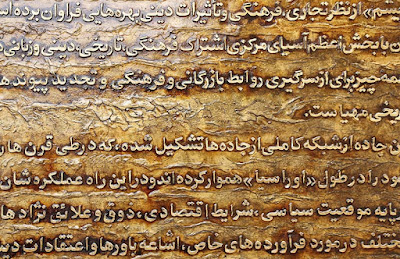 یسم» از نظر تجاری، فرهنگی و تاثیرات دینی بهره‌هایی فراوان برده اس
ن با بخش اعظم آسیای مرکزی اشتراک فرهنگی، تاریخی، دینی و زبانی
مه چیز برای از سرگیری روابط بازرگانی و فرهنگی و تجدید پیوندها
ریخی مهیا ست.
ن جاده از شبکه کاملی از جاده‌ها تشکیل شده، که در طی قرن ها ر
ود را در طول «اوراسیا» هموار کرده اند و در این راه عملکرو شان
ر پایه موقعیت سیاسی، شرایط اقتصادی، ذوق و علائق نژادها
ختلف در مورد فرآورده‌های خاص، اشاعه باورها و اعتقادات دین